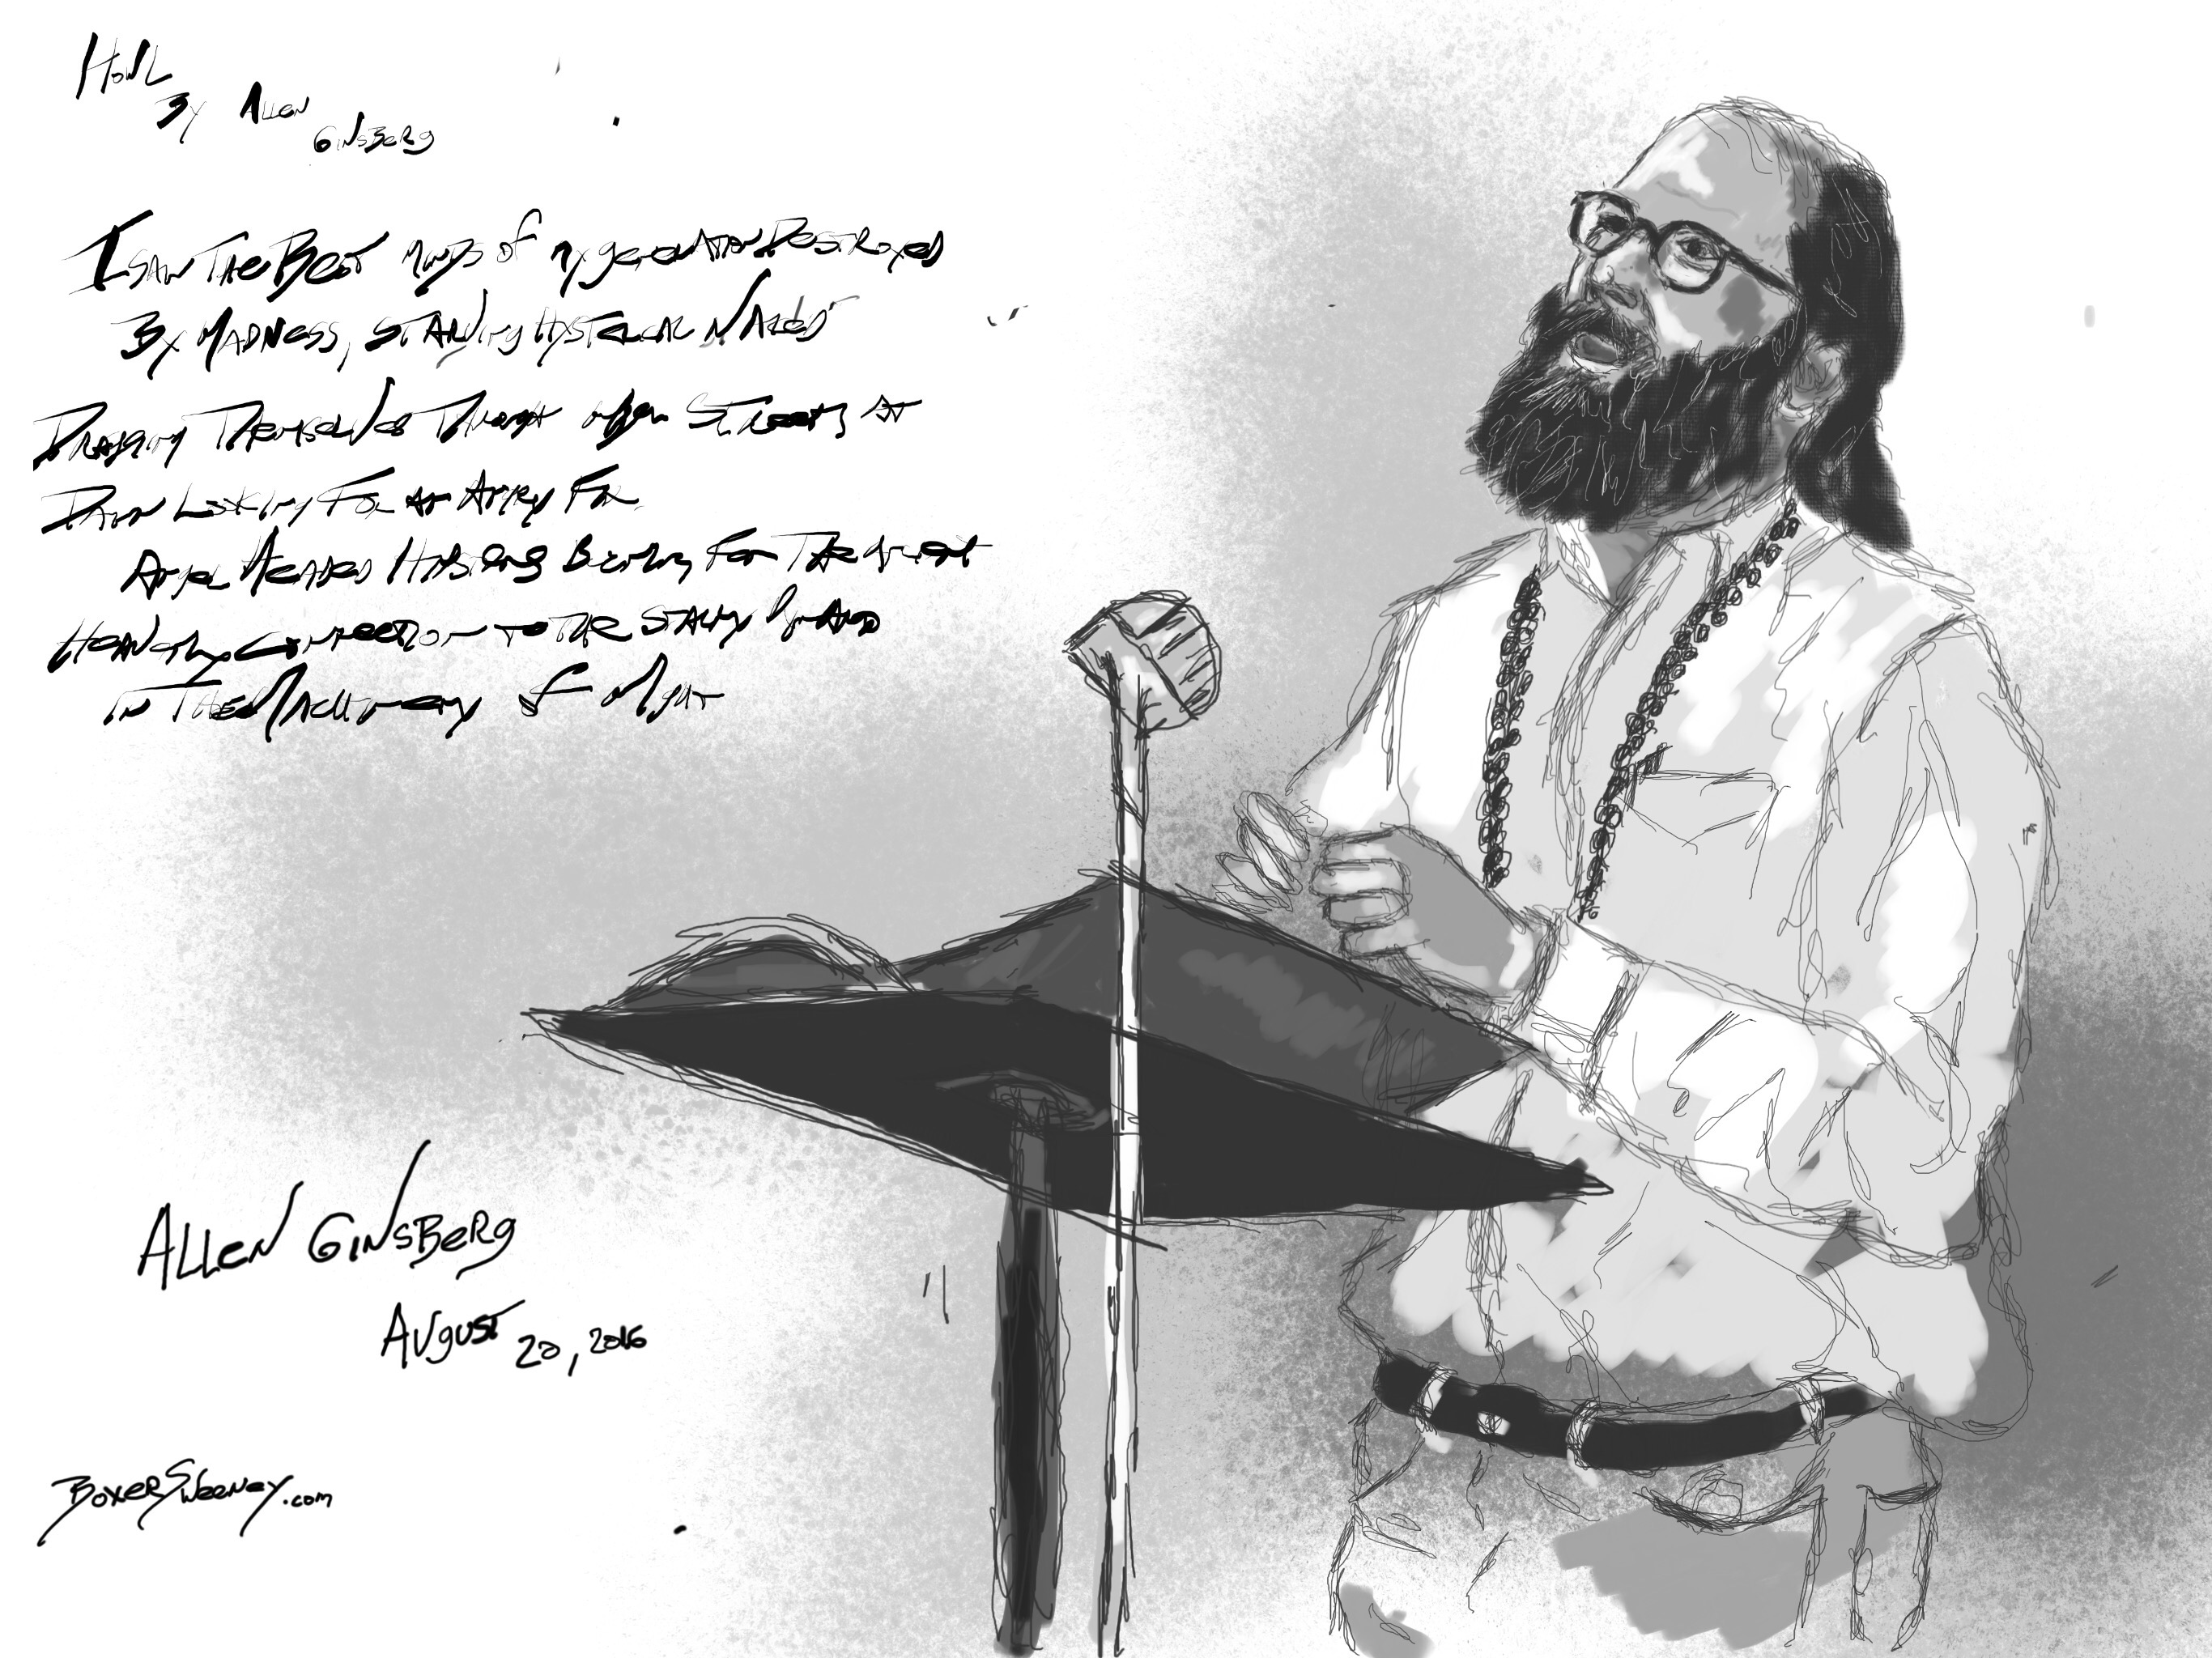 Howl
By Allen
Ginsberg
I saw The Best minds of my generation Destroyed
By Madness, starving hysterical Naked
Dragging Themselves Through Streets at
Dawn Looking For an Angry
Angel Headed Hipsters Burning For The ancient
Heavenly connection to the starry Dynamo
in The Machinery of Night
Allen Ginsberg
August 20, 2016
BoxerSweeney.com